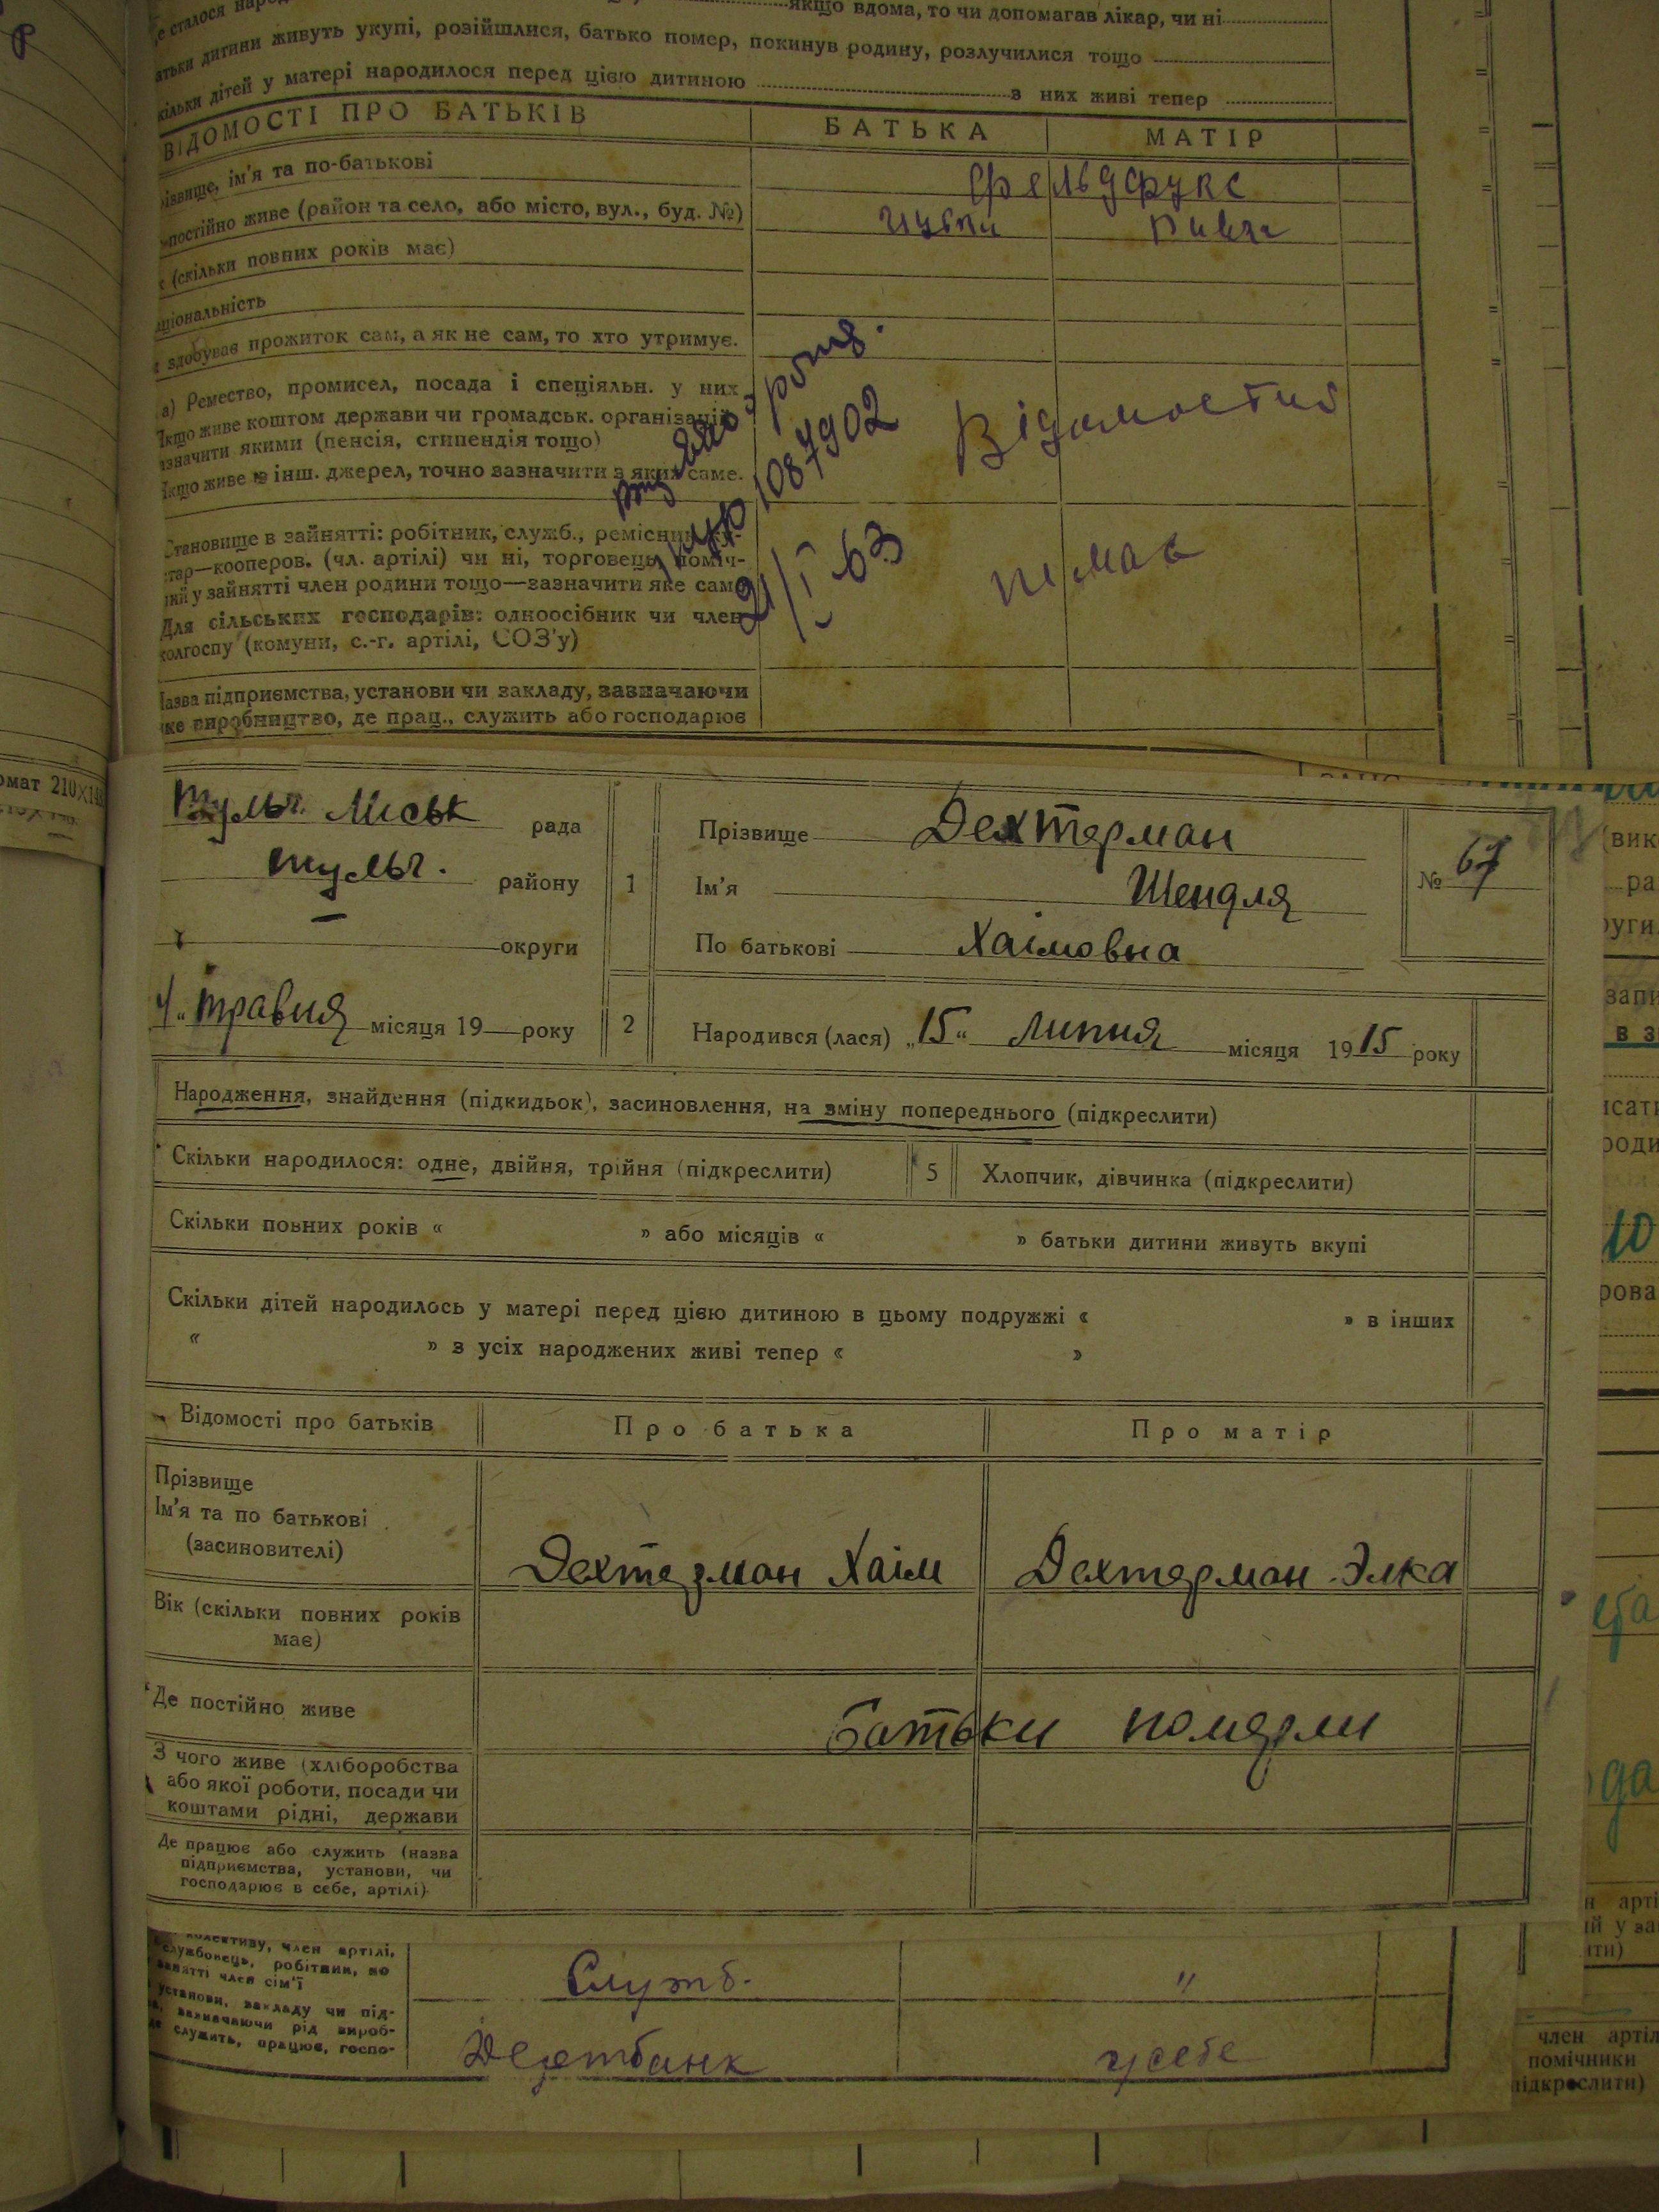 якщо вдома, то чи допомагав лікар, чи ні
дитини живуть укупі, розійшлися, батько помер, покинув родину, розлучилися тощо
дітей у матері народилося перед цією дитиною з них живі тепер
ВІДОМОСТІ ПРО БАТЬКІВ БАТЬКА МАТІР
ім'я та по-батькові Фельдфукс
постійно живе (район та село, або місто, вул., буд. №)
(скільки повних років має)
здобуває прожиток сам, а як не сам, то хто утримує.
а) Ремество, промисел, посада і спеціяльн. у них
Якщо живе коштом держави чи громадськ. організацій
зазначити якими (пенсія, стипендія тощо)
Якщо живе з інш. джерел, точно зазначити з яких саме.
1087902
Відомостий
21/I-63
немає
Становище в зайнятті: робітник, служб., ремісник, ку-
стар—кооперов. (чл. артілі) чи ні, торговець, поміч-
ний у зайнятті член родини тощо—зазначити яке саме
Для сільських господарів: одноосібник чи член
колгоспу (комуни, с.-г. артілі, СОЗ'у)
Назва підприємства, установи чи закладу, зазначаючи
яке виробництво, де прац., служить або господарює
210×148
Тульч. Міськ рада
тульч. району
— округи
травня місяця 19 — року
1 Прізвище Дехтерман
Ім'я Шендля
По батькові Хаімовна
№ 67
2 Народився (лася) „15“ липня місяця 1915 року
Народження, знайдення (підкидьок), засиновлення, на зміну попереднього (підкреслити)
Скільки народилося: одне, двійня, трійня (підкреслити) 5 Хлопчик, дівчинка (підкреслити)
Скільки повних років « » або місяців « » батьки дитини живуть вкупі
Скільки дітей народилось у матері перед цією дитиною в цьому подружжі « » в інших
« » з усіх народжених живі тепер « »
Відомості про батьків Про батька Про матір
Прізвище
Ім'я та по батькові
(засиновителі)
Дехтерман Хаім Дехтерман Элка
Вік (скільки повних років
має)
Де постійно живе батьки померли
З чого живе (хліборобства
або якої роботи, посади чи
коштами рідні, держави
Де працює або служить (назва
підприємства, установи, чи
господарює в себе, артілі)
член артілі,
службовець, робітник, по
занятті член сім'ї
Служб. "
установи, закладу чи під-
зазначаючи рід вироб-
служить, працює, госпо-
Держтбанк у себе
член артіл
помічники
підкреслити)